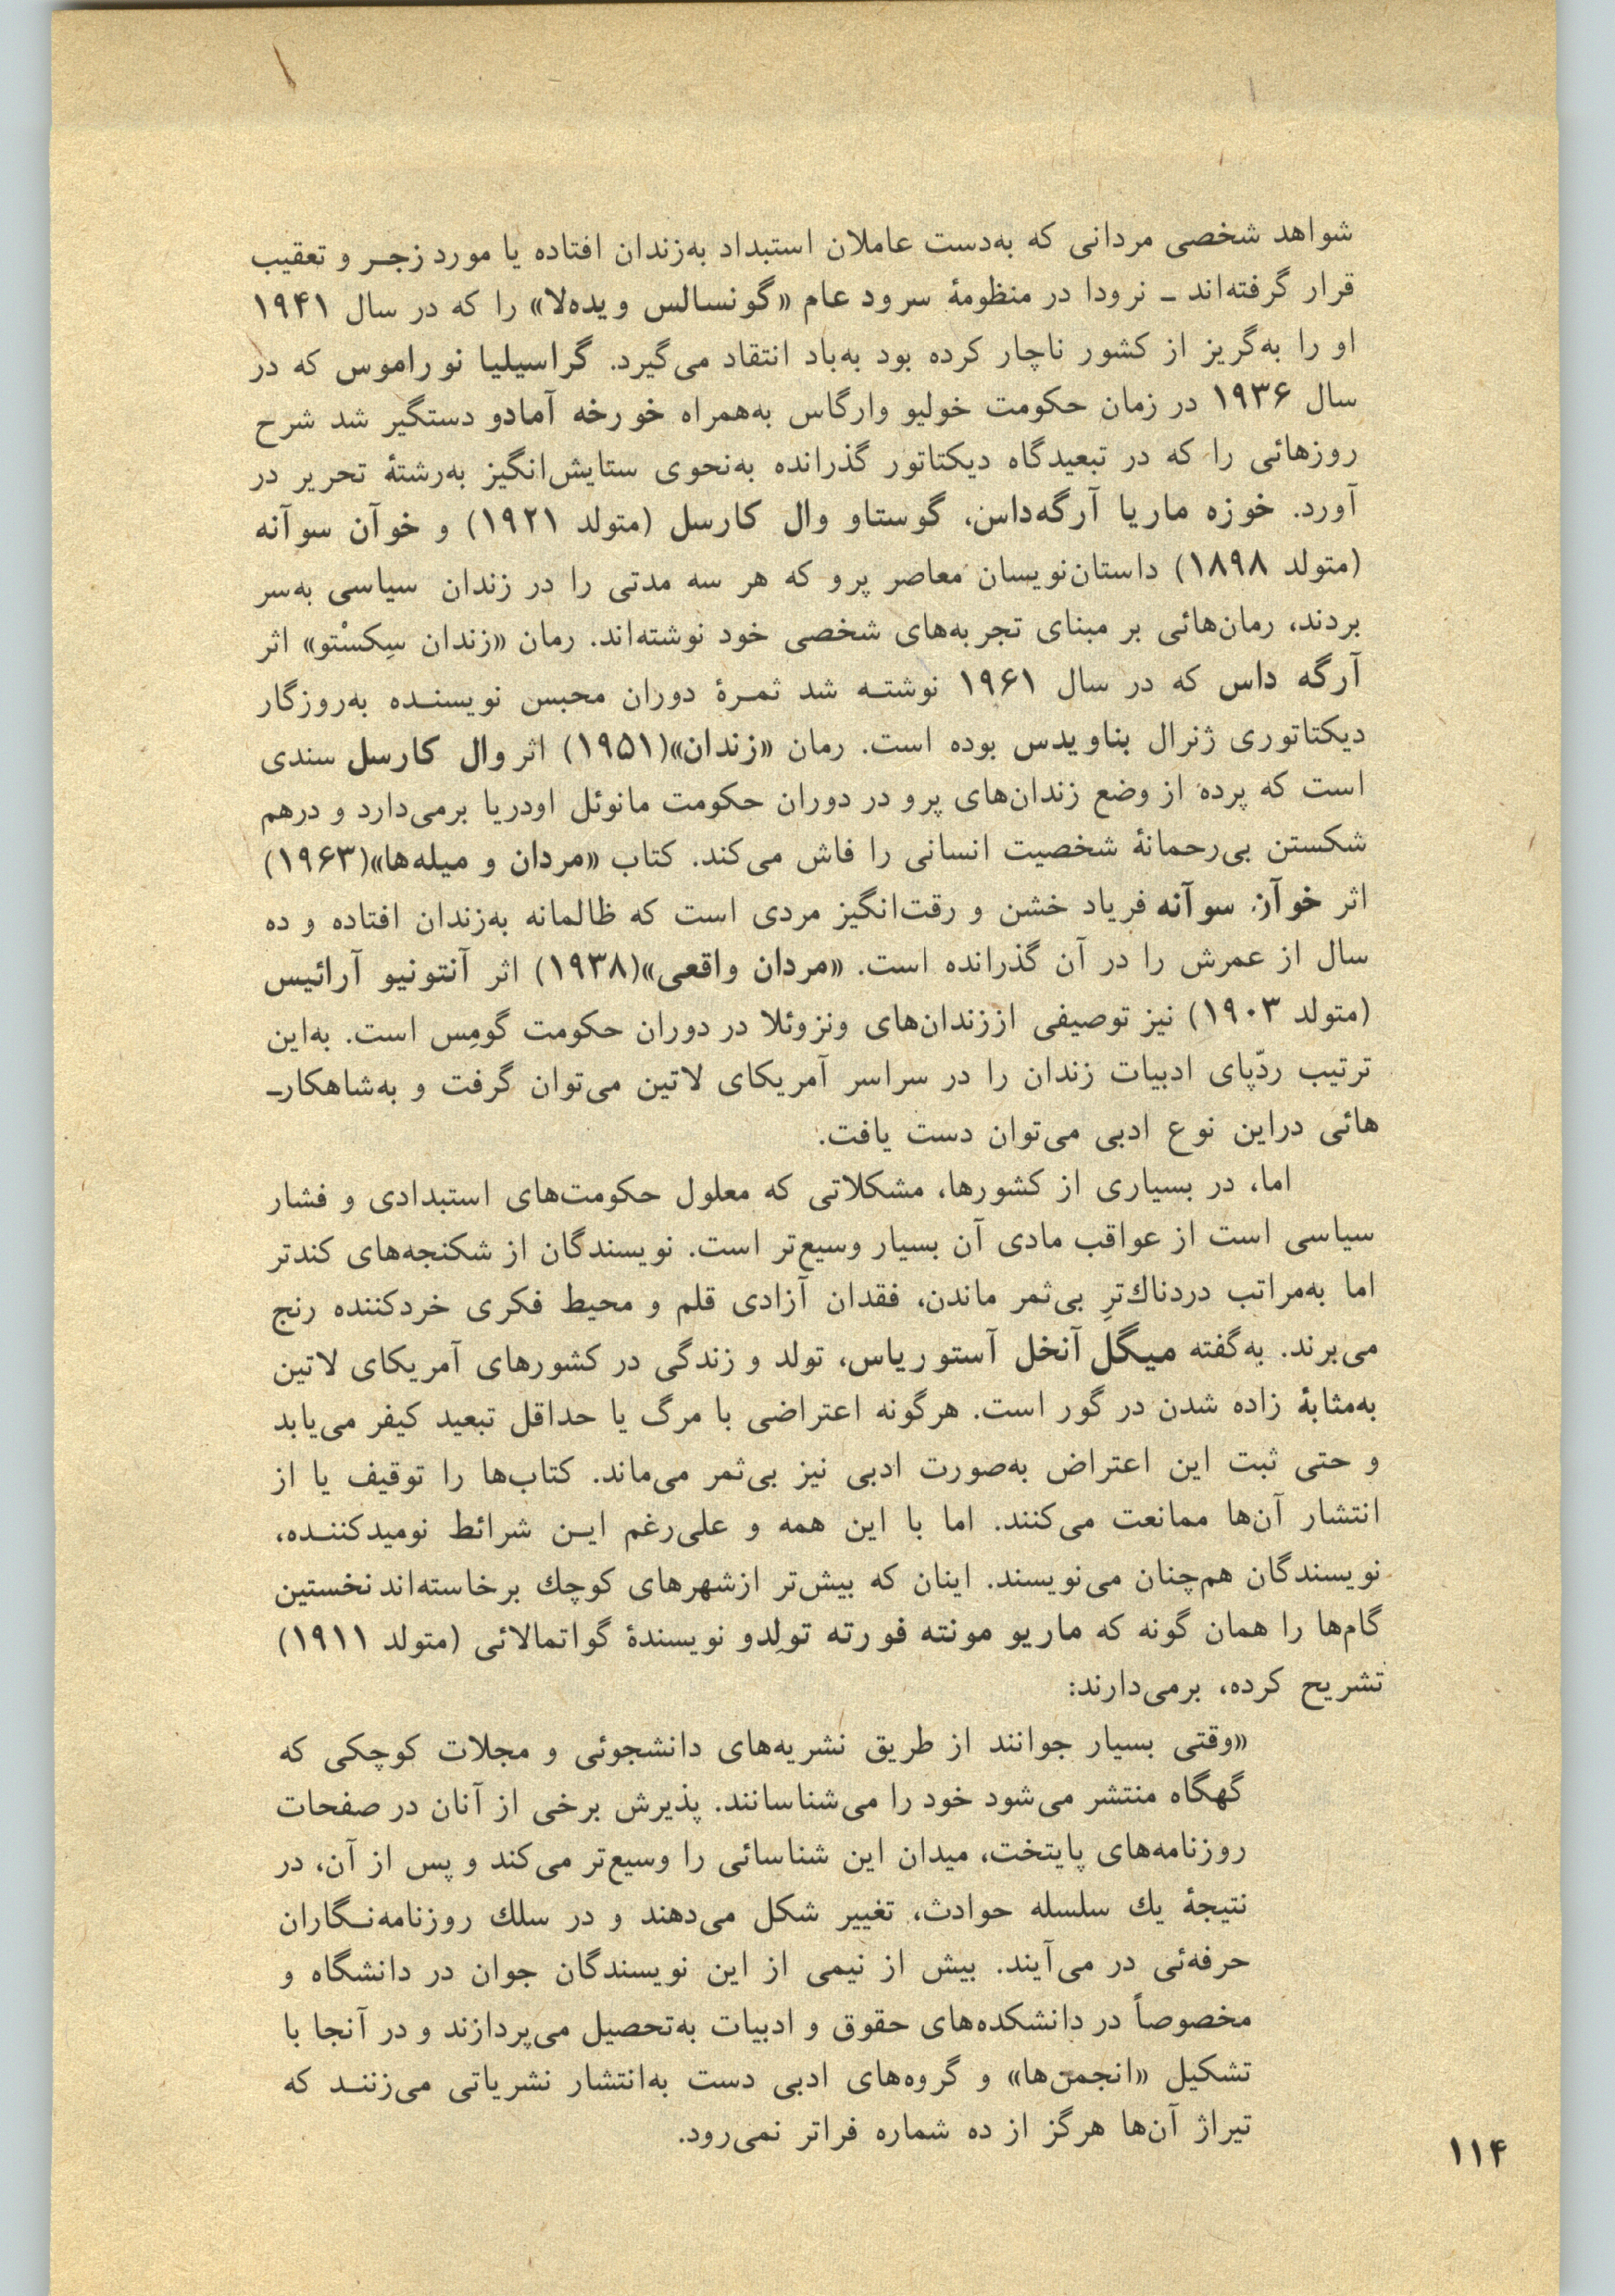 شواهد شخصی مردانی که به‌دست عاملان استبداد به‌زندان افتاده یا مورد زجـر و تعقیب
قرار گرفته‌اند ـ نرودا در منظومهٔ سرود عام «گونسالس ویده‌لا» را که در سال ۱۹۴۱
او را به‌گریز از کشور ناچار کرده بود به‌باد انتقاد می‌گیرد. گراسیلیا نو راموس که در
سال ۱۹۳۶ در زمان حکومت خولیو وارگاس به‌همراه خورخه آمادو دستگیر شد شرح
روزهائی را که در تبعیدگاه دیکتاتور گذرانده به‌نحوی ستایش‌انگیز به‌رشتهٔ تحریر در
آورد. خوزه ماریا آرگه‌داس، گوستاو وال کارسل (متولد ۱۹۲۱) و خوآن سوآنه
(متولد ۱۸۹۸) داستان‌نویسان معاصر پرو که هر سه مدتی را در زندان سیاسی به‌سر
بردند، رمان‌هائی بر مبنای تجربه‌های شخصی خود نوشته‌اند. رمان «زندان سِکسْتو» اثر
آرگه داس که در سال ۱۹۶۱ نوشتـه شد ثمـرهٔ دوران محبس نویسنـده به‌روزگار
دیکتاتوری ژنرال بناویدس بوده است. رمان «زندان»(۱۹۵۱) اثر وال کارسل سندی
است که پرده از وضع زندان‌های پرو در دوران حکومت مانوئل اودریا برمی‌دارد و درهم
شکستن بی‌رحمانهٔ شخصیت انسانی را فاش می‌کند. کتاب «مردان و میله‌ها»(۱۹۶۳)
اثر خوآن سوآنه فریاد خشن و رقت‌انگیز مردی است که ظالمانه به‌زندان افتاده و ده
سال از عمرش را در آن گذرانده است. «مردان واقعی»(۱۹۳۸) اثر آنتونیو آرائیس
(متولد ۱۹۰۳) نیز توصیفی از‌زندان‌های ونزوئلا در دوران حکومت گومِس است. به‌این
ترتیب ردّپای ادبیات زندان را در سراسر آمریکای لاتین می‌توان گرفت و به‌شاهکارـ
هائی دراین نوع ادبی می‌توان دست یافت.
اما، در بسیاری از کشورها، مشکلاتی که معلول حکومت‌های استبدادی و فشار
سیاسی است از عواقب مادی آن بسیار وسیع‌تر است. نویسندگان از شکنجه‌های کندتر
اما به‌مراتب دردناك‌ترِ بی‌ثمر ماندن، فقدان آزادی قلم و محیط فکری خردکننده رنج
می‌برند. به‌گفته میگل آنخل آستوریاس، تولد و زندگی در کشورهای آمریکای لاتین
به‌مثابهٔ زاده شدن در گور است. هرگونه اعتراضی با مرگ یا حداقل تبعید کیفر می‌یابد
و حتی ثبت این اعتراض به‌صورت ادبی نیز بی‌ثمر می‌ماند. کتاب‌ها را توقیف یا از
انتشار آن‌ها ممانعت می‌کنند. اما با این همه و علی‌رغم ایـن شرائط نومیدکننـده،
نویسندگان هم‌چنان می‌نویسند. اینان که بیش‌تر ازشهرهای کوچك برخاسته‌اند نخستین
گام‌ها را همان گونه که ماریو مونته فورته تولِدو نویسندهٔ گواتمالائی (متولد ۱۹۱۱)
تشریح کرده، برمی‌دارند:
«وقتی بسیار جوانند از طریق نشریه‌های دانشجوئی و مجلات کوچکی که
گهگاه منتشر می‌شود خود را می‌شناسانند. پذیرش برخی از آنان در صفحات
روزنامه‌های پایتخت، میدان این شناسائی را وسیع‌تر می‌کند و پس از آن، در
نتیجهٔ یك سلسله حوادث، تغییر شکل می‌دهند و در سلك روزنامه‌نـگاران
حرفه‌ئی در می‌آیند. بیش از نیمی از این نویسندگان جوان در دانشگاه و
مخصوصاً در دانشکده‌های حقوق و ادبیات به‌تحصیل می‌پردازند و در آنجا با
تشکیل «انجمن‌ها» و گروه‌های ادبی دست به‌انتشار نشریاتی می‌زننـد که
تیراژ آن‌ها هرگز از ده شماره فراتر نمی‌رود.
۱۱۴